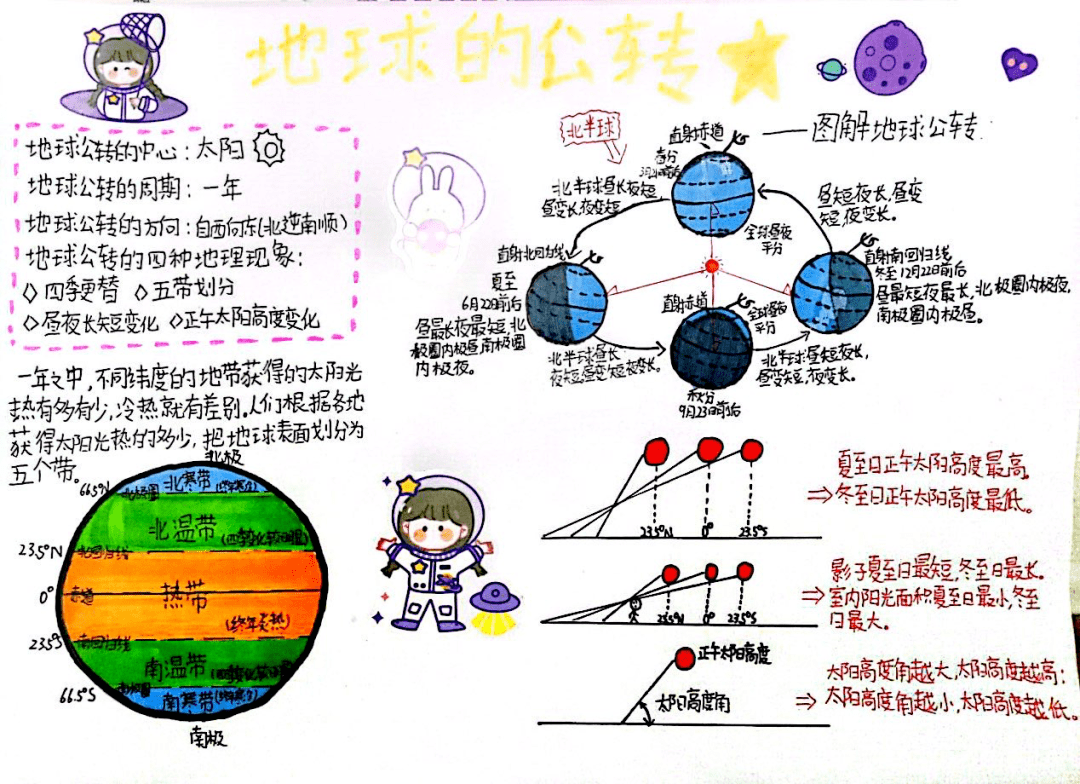 地球的公转
地球公转的中心：太阳
地球公转的周期：一年
地球公转的方向：自西向东(北逆南顺)
地球公转的四种地理现象：
◇四季更替 ◇五带划分
◇昼夜长短变化 ◇正午太阳高度变化
北半球
图解地球公转
直射赤道
春分
3月21日前后
北半球昼长夜短,
昼变长,夜变短
昼短夜长,昼变
短,夜变长。
全球昼夜
平分
直射北回归线
夏至
6月22日前后
昼最长夜最短,北
极圈内极昼,南极圈
内极夜。
直射南回归线
冬至12月22日前后
昼最短夜最长,北极圈内极夜,
南极圈内极昼。
直射赤道
全球昼夜
平分
秋分
9月23日前后
北半球昼长
夜短,昼变短夜变长。
北半球昼短夜长,
昼变短,夜变长。
一年之中,不同纬度的地带获得的太阳光
热有多有少,冷热就有差别。人们根据各地
获得太阳光热的多少,把地球表面划分为
五个带。
北极
66.5°N 北极圈 北寒带
北温带
23.5°N 北回归线
0° 赤道 热带
(终年炎热)
23.5°S 南回归线
南温带
66.5°S 南极圈 南寒带
南极
23.5°N 0° 23.5°S
夏至日正午太阳高度最高。
⇒冬至日正午太阳高度最低。
23.5°N 0° 23.5°S
影子夏至日最短,冬至日最长。
⇒室内阳光面积夏至日最小,冬至
日最大。
正午太阳高度
太阳高度角
太阳高度角越大,太阳高度越高;
⇒太阳高度角越小,太阳高度越低。